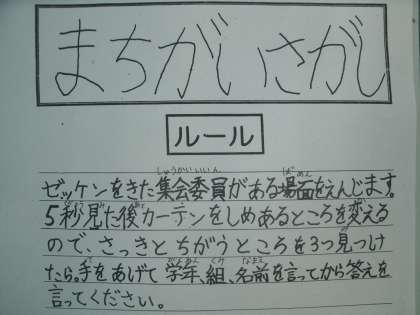 まちがいさがし
ルール
ゼッケンをきた集会委員がある場面をえんじます。
5秒見た後カーテンをしめあるところを変える
ので、さっきとちがうところを3つ見つけ
たら。手をあげて学年、組、名前を言ってから答えを
言ってください。